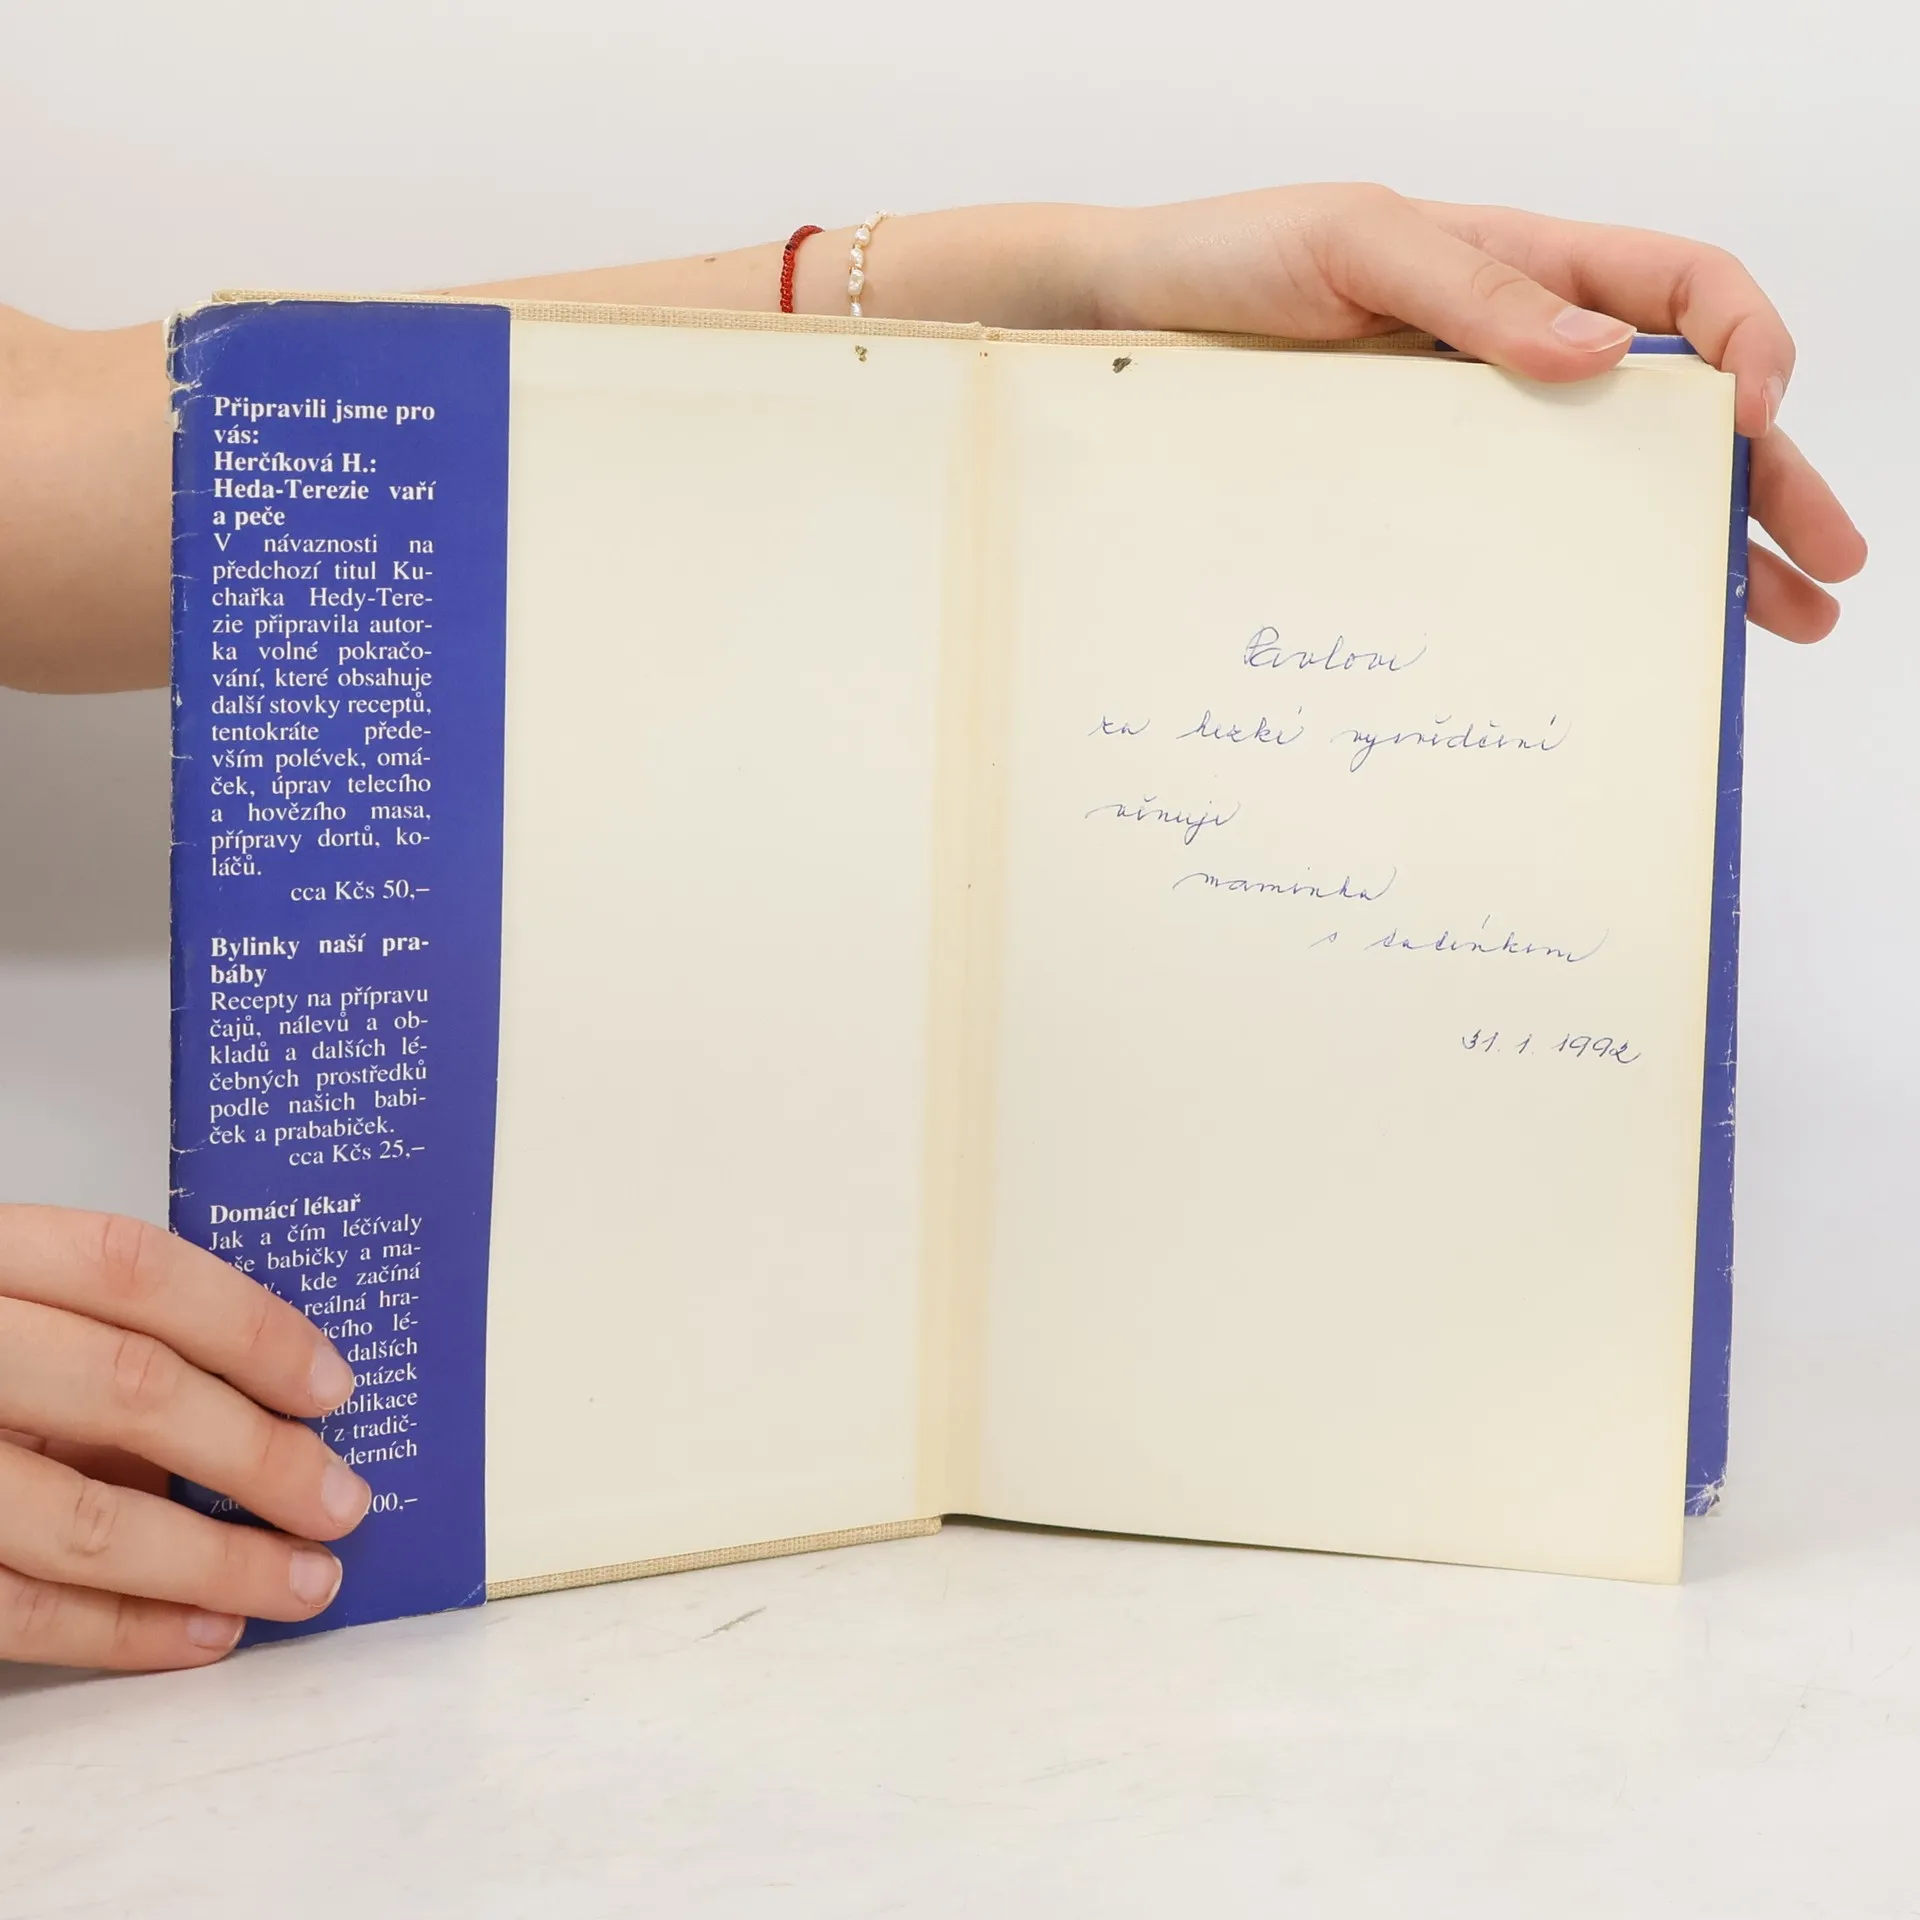 Připravili jsme pro
vás:
Herčíková H.:
Heda-Terezie vaří
a peče
V návaznosti na
předchozí titul Ku-
chařka Hedy-Tere-
zie připravila autor-
ka volné pokračo-
vání, které obsahuje
další stovky receptů,
tentokráte přede-
vším polévek, omá-
ček, úprav telecího
a hovězího masa,
přípravy dortů, ko-
láčů.
cca Kčs 50,–
Bylinky naší pra-
báby
Recepty na přípravu
čajů, nálevů a ob-
kladů a dalších lé-
čebných prostředků
podle našich babi-
ček a prababiček.
cca Kčs 25,–
Domácí lékař
Jak a čím léčívaly
babičky a ma-
kde začíná
reálná hra-
lé-
dalších
otázek
z tradič-
00,–
Pavlovi
za hezké vysvědčení
věnuje
maminka
s tatínkem
31. 1. 1992